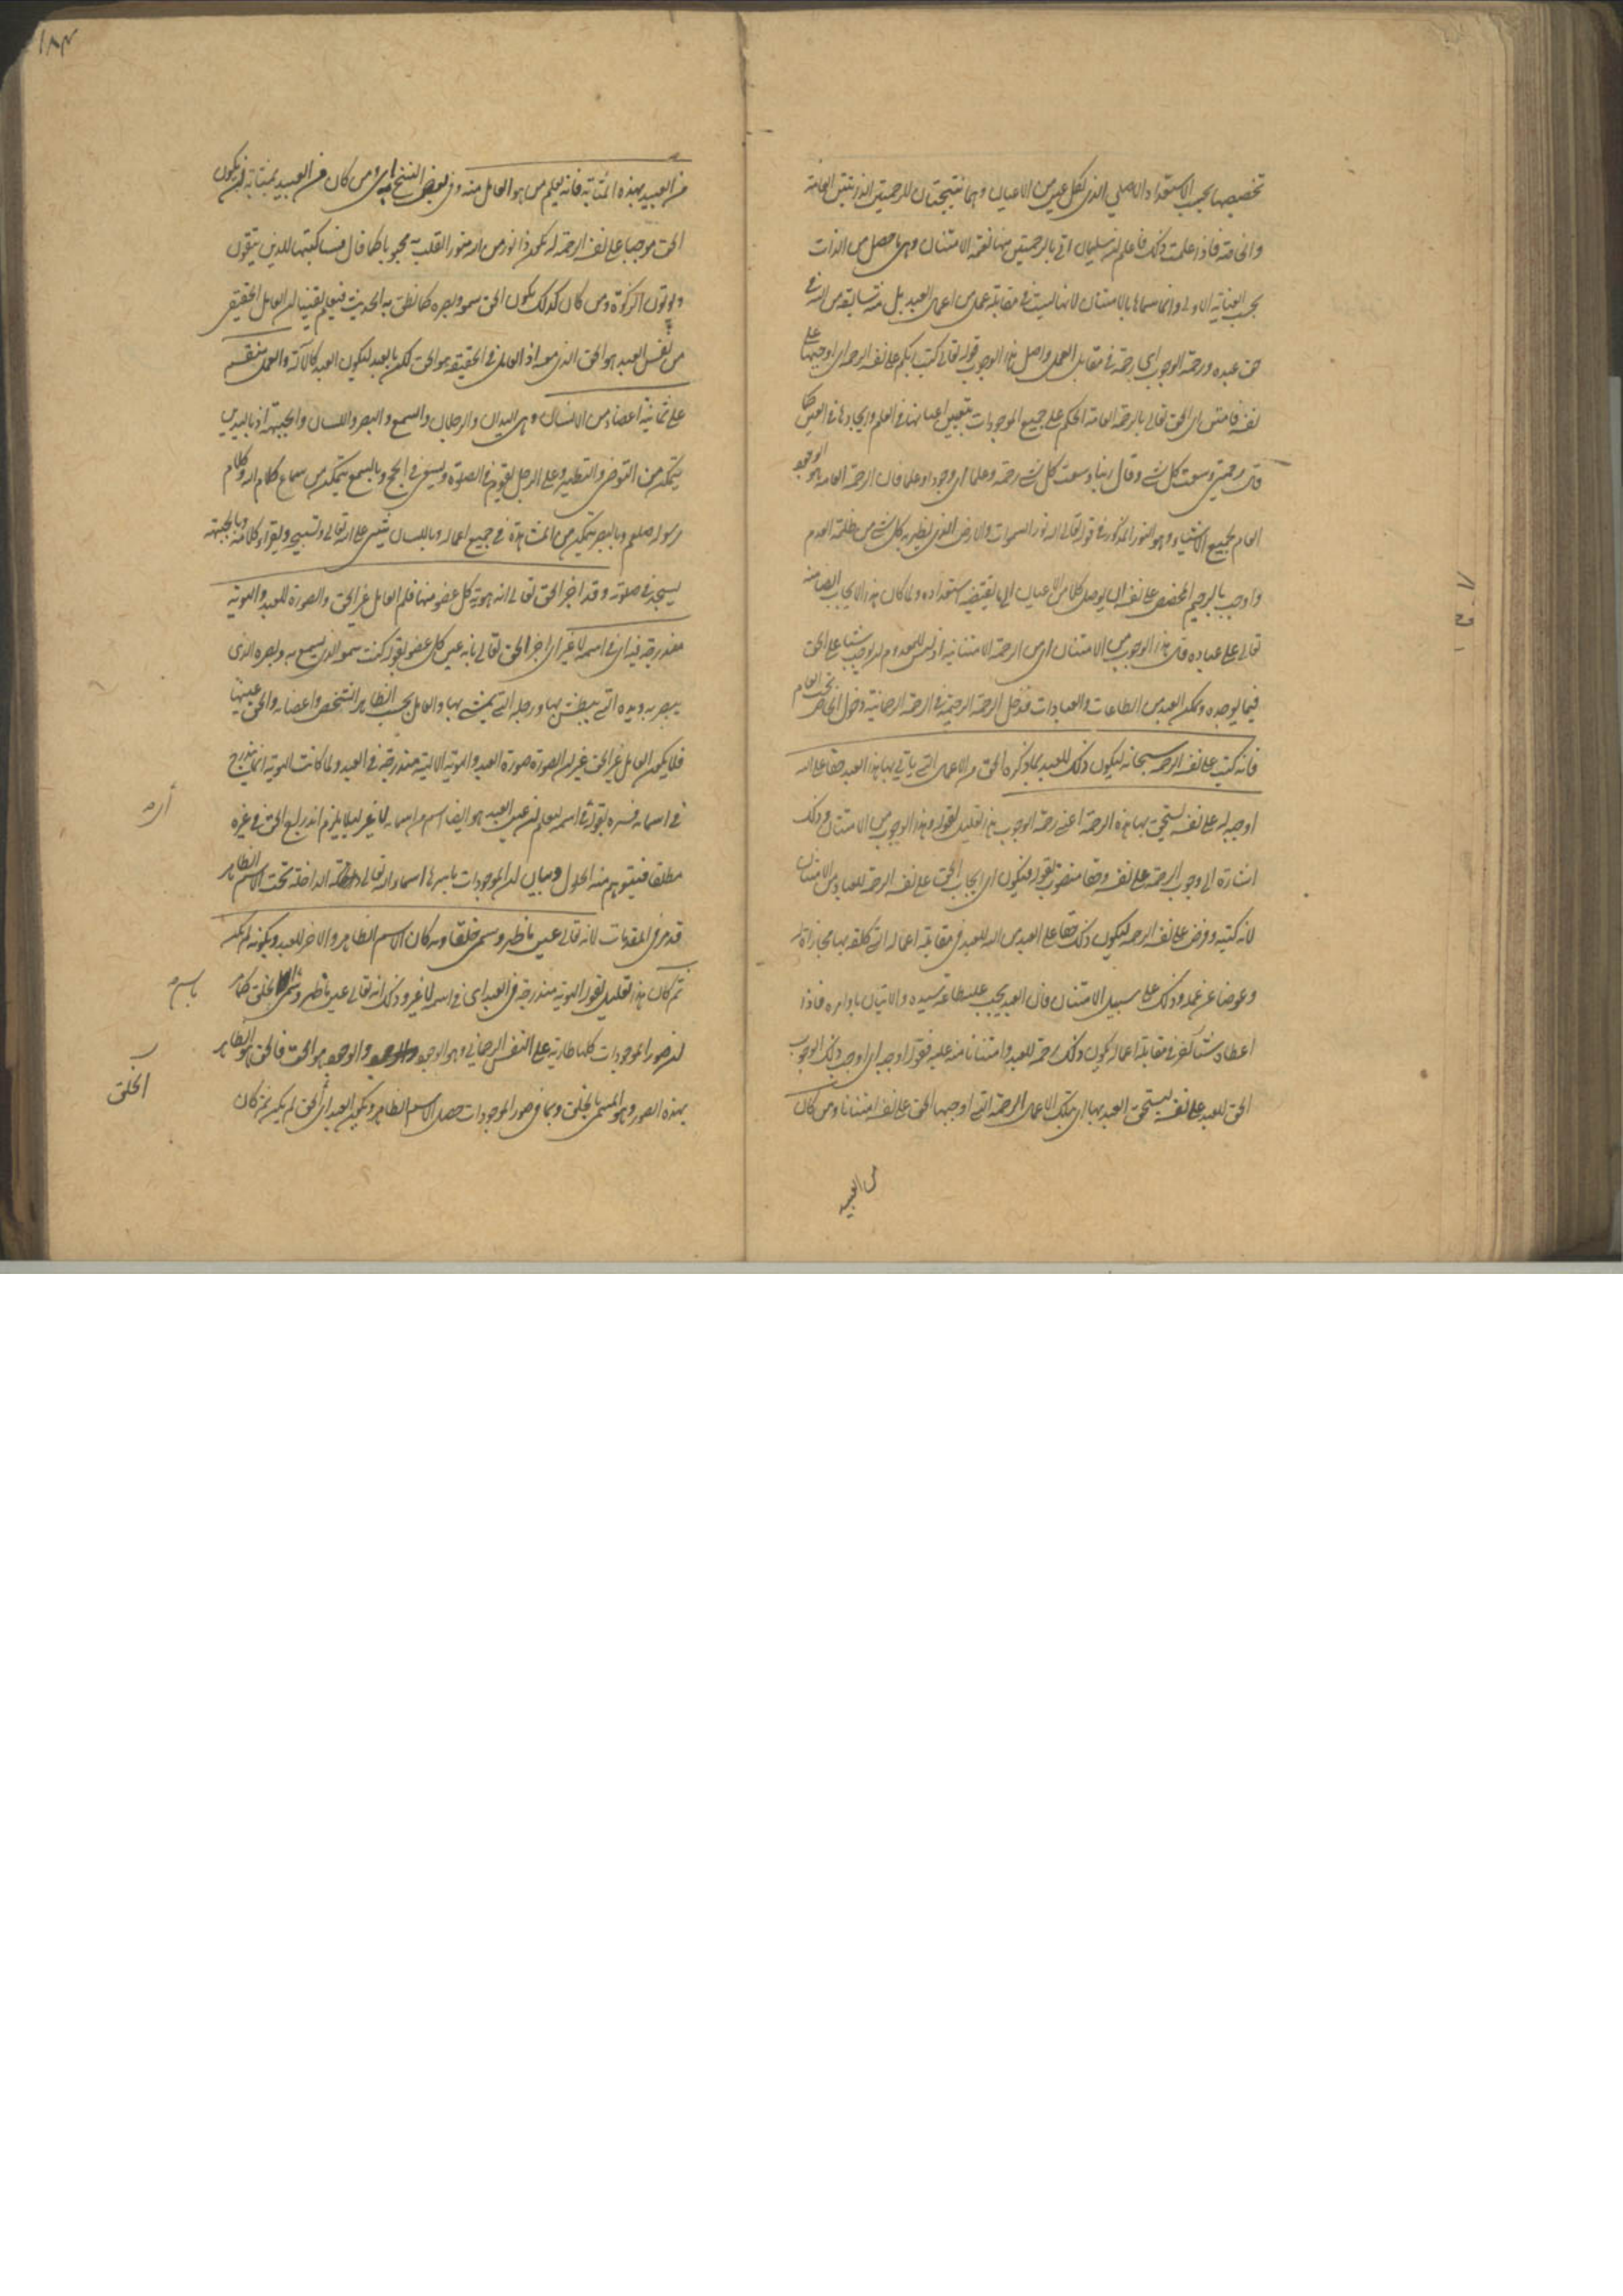 تخصيصها بحسب الاستعداد الاصلي الذي لكل عين من الاعيان وهما نتيجتان للرحمتين الذاتيتين العامة
والخاصة فاذا علمت ذلك فاعلم ان سليمان اتى بالرحمتين منها نعمة الامتنان وهي ما حصل من الذات
بحسب العناية الاولى وانما سماها بالامتنان لانها ليست في مقابلة عمل من اعمال العبد بل منة سابقة من الله في
حق عبده ورحمة الوجوب اي رحمة في مقابل العمل واصل هذا الوجوب قوله تعالى كتب ربكم على نفسه الرحمة اي اوجبها على
نفسه فامتن اي الحق تعالى بالرحمة العامة الحكم على جميع الموجودات بتعيين اعيانها في العلم وايجادها في العين كما
قال رحمتي وسعت كل شيء وقال ربنا وسعت كل شيء رحمة وعلما اي وجودا وعلما فان الرحمة العامة هو الوجود
العام لجميع الاشياء وهو النور المذكور في قوله تعالى الله نور السموات والارض الذي يظهر به كل شيء من ظلمة العدم
واوجب بالرحيم المخصص على نفسه ان يوصل كلا من الاعيان الى ما يقتضيه استعداده ولما كان هذا الايجاب ايضا منة
تعالى على عباده قال هذا الوجوب من الامتنان اي من الرحمة الامتنانية اذ ليس للمعدوم ان يوجب شيئا على الحق
فيما يوجده ويمكن العبد من الطاعات والعبادات فدخل الرحمة الرحيمية في الرحمة الرحمانية دخول الخاص تحت العام
فانه كتب على نفسه الرحمة سبحانه ليكون ذلك للعبد بما ذكره الحق من الاعمال التي ياتي بها هذا العبد حقا على الله
اوجبه له على نفسه يستحق بها هذه الرحمة اعني رحمة الوجوب هذا تعليل لقوله وهذا الوجوب من الامتنان وذلك
اشارة الى وجوب الرحمة على نفسه وحقا منصوب بقوله فيكون اي ايجاب الحق على نفسه الرحمة للعباد من الامتنان
لانه كتبه وفرض على نفسه الرحمة ليكون ذلك حقا على العبد من الله للعبد في مقابلة اعماله التي كلفه بها مجازاة له
وعوضا عن عمله وذلك على سبيل الامتنان فان العبد يجب عليه طاعة سيده والاتيان باوامره فاذا
اعطاه شيئا آخر في مقابلة اعماله يكون ذلك رحمة للعبد وامتنانا منه عليه فقوله اوجبه اي اوجب ذلك الوجوب
الحق للعبد على نفسه ليستحق العبد بها اي بتلك الاعمال الرحمة التي اوجبها الحق على نفسه امتنانا ومن كان
من العبيد
١٨٣
من العبيد بهذه المثابة فانه يعلم من هو العامل منه وفي بعض النسخ اي ومن كان من العبيد بمثابة ان يكون
الحق موجبا على نفسه الرحمة له يكون ذا نور من الله منور القلب به محبوبا كما قال فساكتبها للذين يتقون
ويؤتون الزكوة ومن كان كذلك يكون الحق سمعه وبصره كما نطق به الحديث فيعلم يقينا ان العامل الحقيقي
من نفس العبد هو الحق الذي معه اذ العامل في الحقيقة هو الحق لكن بالعبد ليكون العبد كالآلة والعمل منقسم
على ثمانية اعضاء من الانسان وهي اليدان والرجلان والسمع والبصر واللسان والجبهة اذ باليدين
يتمكن من التوضي والتطهير وعلى الرجل يقوم في الصلوة ويسعى في الحج وبالسمع يتمكن من سماع كلام الله وكلام
رسوله صلعم وبالبصر يتمكن من المشاهدة في جميع اعماله وباللسان يثني على الله تعالى وتسبيحه ويقراء كلامه وبالجبهة
يسجد في صلوته وقد اخبر الحق تعالى انه هوية كل عضو منها فلم العامل غير الحق والصورة للعبد والهوية
مندرجة فيه اي في اسمه لا غير اي اخبر الحق تعالى بانه عين كل عضو بقوله كنت سمعه الذي يسمع به وبصره الذي
يبصر به ويده التي يبطش بها ورجله التي يمشي بها والعامل بحسب الظاهر الشخص واعضاءه والحق عينها
فلا يكون العامل غير الحق غير ان الصورة صورة العبد والهوية الالهية مندرجة في العبد ولما كانت الهوية انما يندرج
في اسمائه فسره بقوله اي في اسمه ليعلم ان عين العبد هو ايضا اسم من اسمائه لا غير لئلا يلزم اندراج الحق في غيره
مطلقا فيتوهم منه الحلول وبيان ان الموجودات باسرها اسماء الله تعالى الداخلة تحت الاسم الظاهر
قد مر في المقدمات لانه تعالى عين ما ظهر وسمي خلقا وبه كان الاسم الظاهر والاخر للعبد وبكونه لم يكن
ثم كان هذا تعليل لقوله الهوية مندرجة في العبد اي في اسمه لا غير وذلك انه تعالى عين ما ظهر وسمي بالخلق كما مر
ان صور الموجودات كلها طارية على النفس الرحماني وهو الوجود والوجود هو الحق فالحق هو الظاهر
بهذه الصور وهو المسمى بالخلق وبما في صور الموجودات حصل الاسم الظاهر وبكون العبد اي الحق لم يكن ثم كان